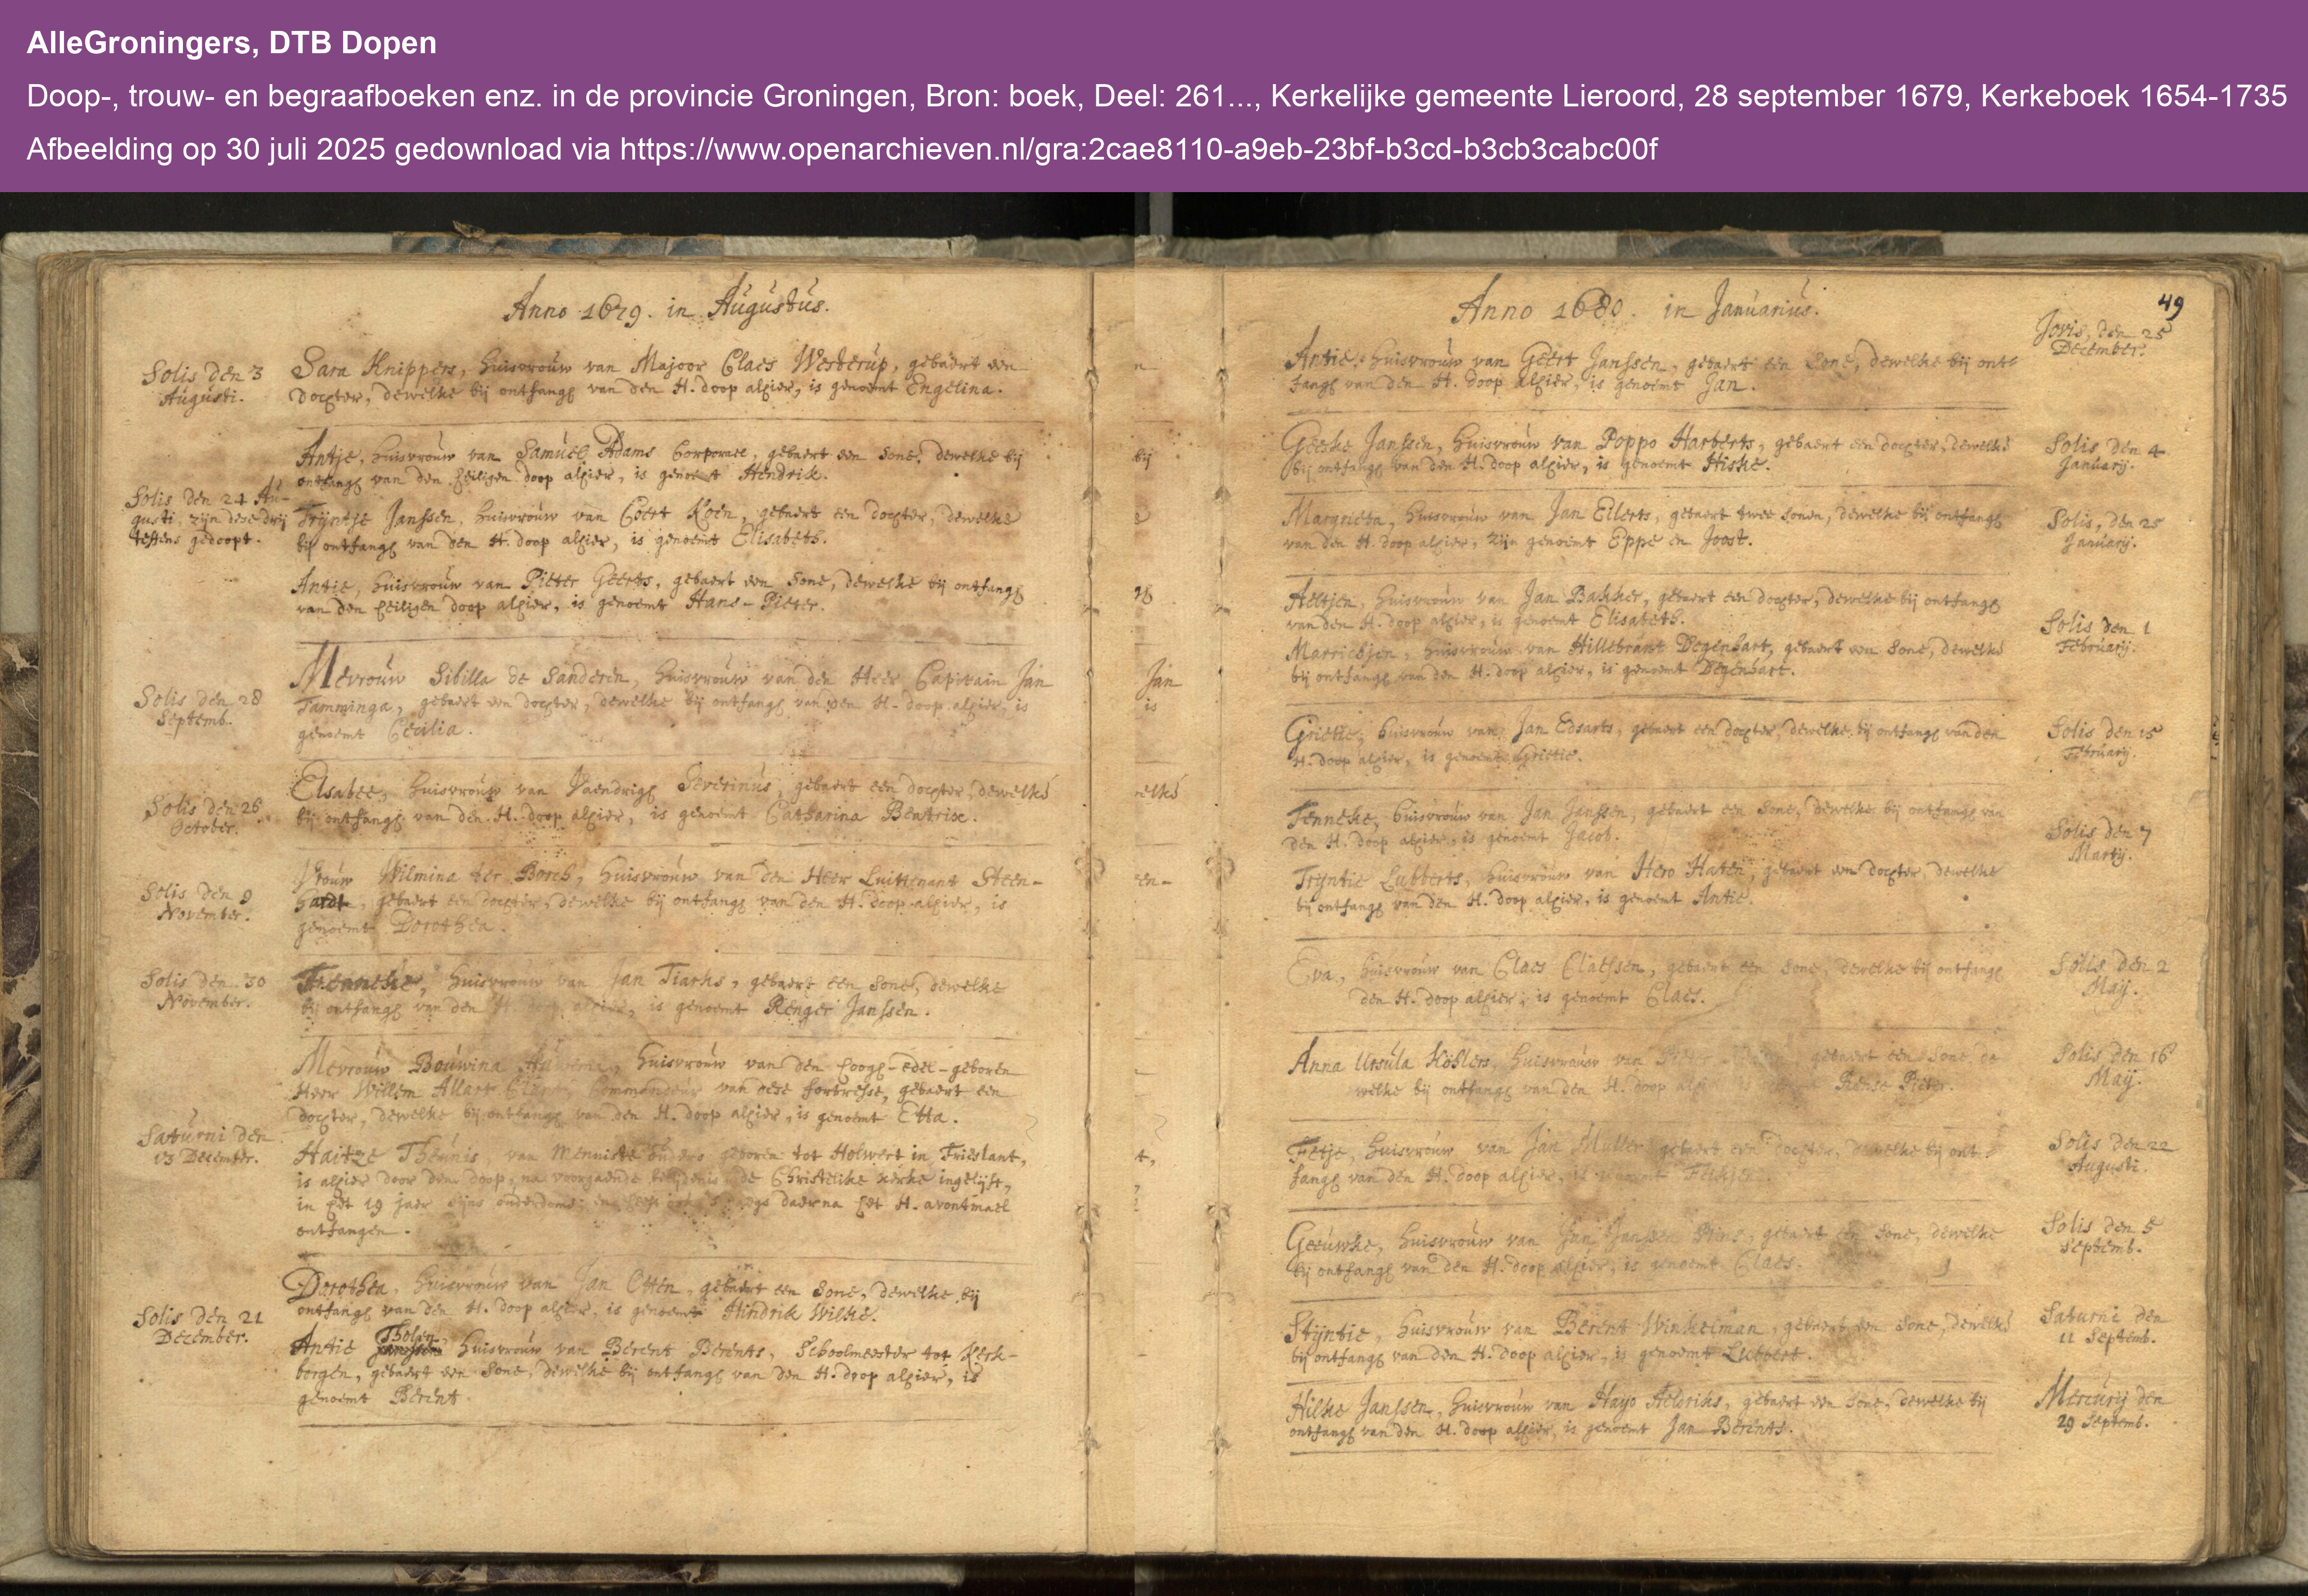 AlleGroningers, DTB Dopen
Doop-, trouw- en begraafboeken enz. in de provincie Groningen, Bron: boek, Deel: 261..., Kerkelijke gemeente Lieroord, 28 september 1679, Kerkeboek 1654-1735
Afbeelding op 30 juli 2025 gedownload via https://www.openarchieven.nl/gra:2cae8110-a9eb-23bf-b3cd-b3cb3cabc00f
Anno 1679. in Augustus.
Solis den 3
Augusti.
Sara Knippers, huisvrouw van Majoor Claes Westerup, gebaert een
dochter, dewelke bij ontfangh van den H. doop alhier, is genoemt Engelina.
Antje, huisvrouw van Samuel Adams Corporael, gebaert een sone, dewelke bij
ontfangh van den heiligen doop alhier, is genoemt Hendrik.
Solis den 24 Au-
gusti, zijn dese drij
teffens gedoopt.
Trijntje Janssen, huisvrouw van Coert Koen, gebaert een dochter, dewelke
bij ontfangh van den H. doop alhier, is genoemt Elisabeth.
Antie, huisvrouw van Pieter Geerts, gebaert een sone, dewelke bij ontfangh
van den heiligen doop alhier, is genoemt Hans-Pieter.
Solis den 28
Septemb.
Mevrouw Sibilla de Sanderen, huisvrouw van den Heer Capitain Jan
Tamminga, gebaert een dochter, dewelke bij ontfangh van den H. doop alhier, is
genoemt Cecilia.
Solis den 26
October.
Elsabee, huisvrouw van Vaendrigh Severinus, gebaert een dochter, dewelke
bij ontfangh van den H. doop alhier, is genoemt Catharina Beatrix.
Solis den 9
November.
Vrouw Wilmina ter Borch, huisvrouw van den Heer Luitienant Steen-
hardt, gebaert een dochter, dewelke bij ontfangh van den H. doop alhier, is
genoemt Dorothea.
Solis den 30
November.
Frenneke, huisvrouw van Jan Tiarks, gebaert een sone, dewelke
bij ontfangh van den H. doop alhier, is genoemt Renger Janssen.
Saturni den
13 December.
Mevrouw Bouwina, huisvrouw van den hoogh-edel-geboren
Heer Willem Allart Commandeur van dese fortresse, gebaert een
dochter, dewelke bij ontfangh van den H. doop alhier, is genoemt Etta.
Haitze Theunis, van Menniste ouders geboren tot Holwert in Frieslant,
is alhier door den doop, na voorgaende belijdenis, de Christelike kerke ingelijft,
in het 19 jaer sijns ouderdoms; en heeft daerna het H. avontmael
ontfangen.
Solis den 21
December.
Dorothea, huisvrouw van Jan Otten, gebaert een sone, dewelke bij
ontfangh van den H. doop alhier, is genoemt Hindrik Wilke.
Antie Tholen, huisvrouw van Berent Berents, Schoolmeester tot Kerk-
borgen, gebaert een sone, dewelke bij ontfangh van den H. doop alhier, is
genoemt Berent.
49
Anno 1680. in Januarius.
Jovis, den 25
December.
Antie, huisvrouw van Geert Janssen, gebaert een sone, dewelke bij ont-
fangh van den H. doop alhier, is genoemt Jan.
Geeske Janssen, huisvrouw van Poppo Harberts, gebaert een dochter, dewelke
bij ontfangh van den H. doop alhier, is genoemt Hiske.
Solis den 4
Januarij.
Margrieta, huisvrouw van Jan Eilerts, gebaert twee sonen, dewelke bij ontfangh
van den H. doop alhier, zijn genoemt Eppe en Joost.
Solis, den 25
Januarij.
Aeltjen, huisvrouw van Jan Bakker, gebaert een dochter, dewelke bij ontfangh
van den H. doop alhier, is genoemt Elisabeth.
Solis den 1
Februarij.
Marriebjen, huisvrouw van Hillebrant Degenhart, gebaert een sone, dewelke
bij ontfangh van den H. doop alhier, is genoemt Degenhart.
Grietie, huisvrouw van Jan Edsarts, gebaert een dochter, dewelke bij ontfangh van den
H. doop alhier, is genoemt Grietie.
Solis den 15
Februarij.
Fenneke, huisvrouw van Jan Janssen, gebaert een sone, dewelke bij ontfangh van
den H. doop alhier, is genoemt Jacob.
Solis den 7
Martij.
Trijntie Lubberts, huisvrouw van Hero Haten, gebaert een dochter, dewelke
bij ontfangh van den H. doop alhier, is genoemt Antie.
Eva, huisvrouw van Claes Claessen, gebaert een sone, dewelke bij ontfangh
den H. doop alhier, is genoemt Claes.
Solis den 2
Maij.
Anna Ursula Kohlers, huisvrouw van Pieter gebaert een sone, de
welke bij ontfangh van den H. doop Pieter.
Solis den 16
Maij.
Fetje, huisvrouw van Jan Muller gebaert een dochter, dewelke bij ont-
fangh van den H. doop alhier, is genoemt
Solis den 22
Augusti.
Geeuwke, huisvrouw van Jan Janssen gebaert een sone, dewelke
bij ontfangh van den H. doop alhier, is genoemt Claes.
Solis den 5
Septemb.
Stijntie, huisvrouw van Berent Winkelman, gebaert een sone, dewelke
bij ontfangh van den H. doop alhier, is genoemt Lubbert.
Saturni den
11 Septemb.
Hilke Janssen, huisvrouw van Hayo Aeldriks, gebaert een sone, dewelke bij
ontfangh van den H. doop alhier, is genoemt Jan Berents.
Mercurij den
29 Septemb.